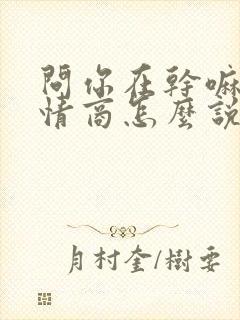 問你在幹嘛
情商怎麼說
月村奎/樹要